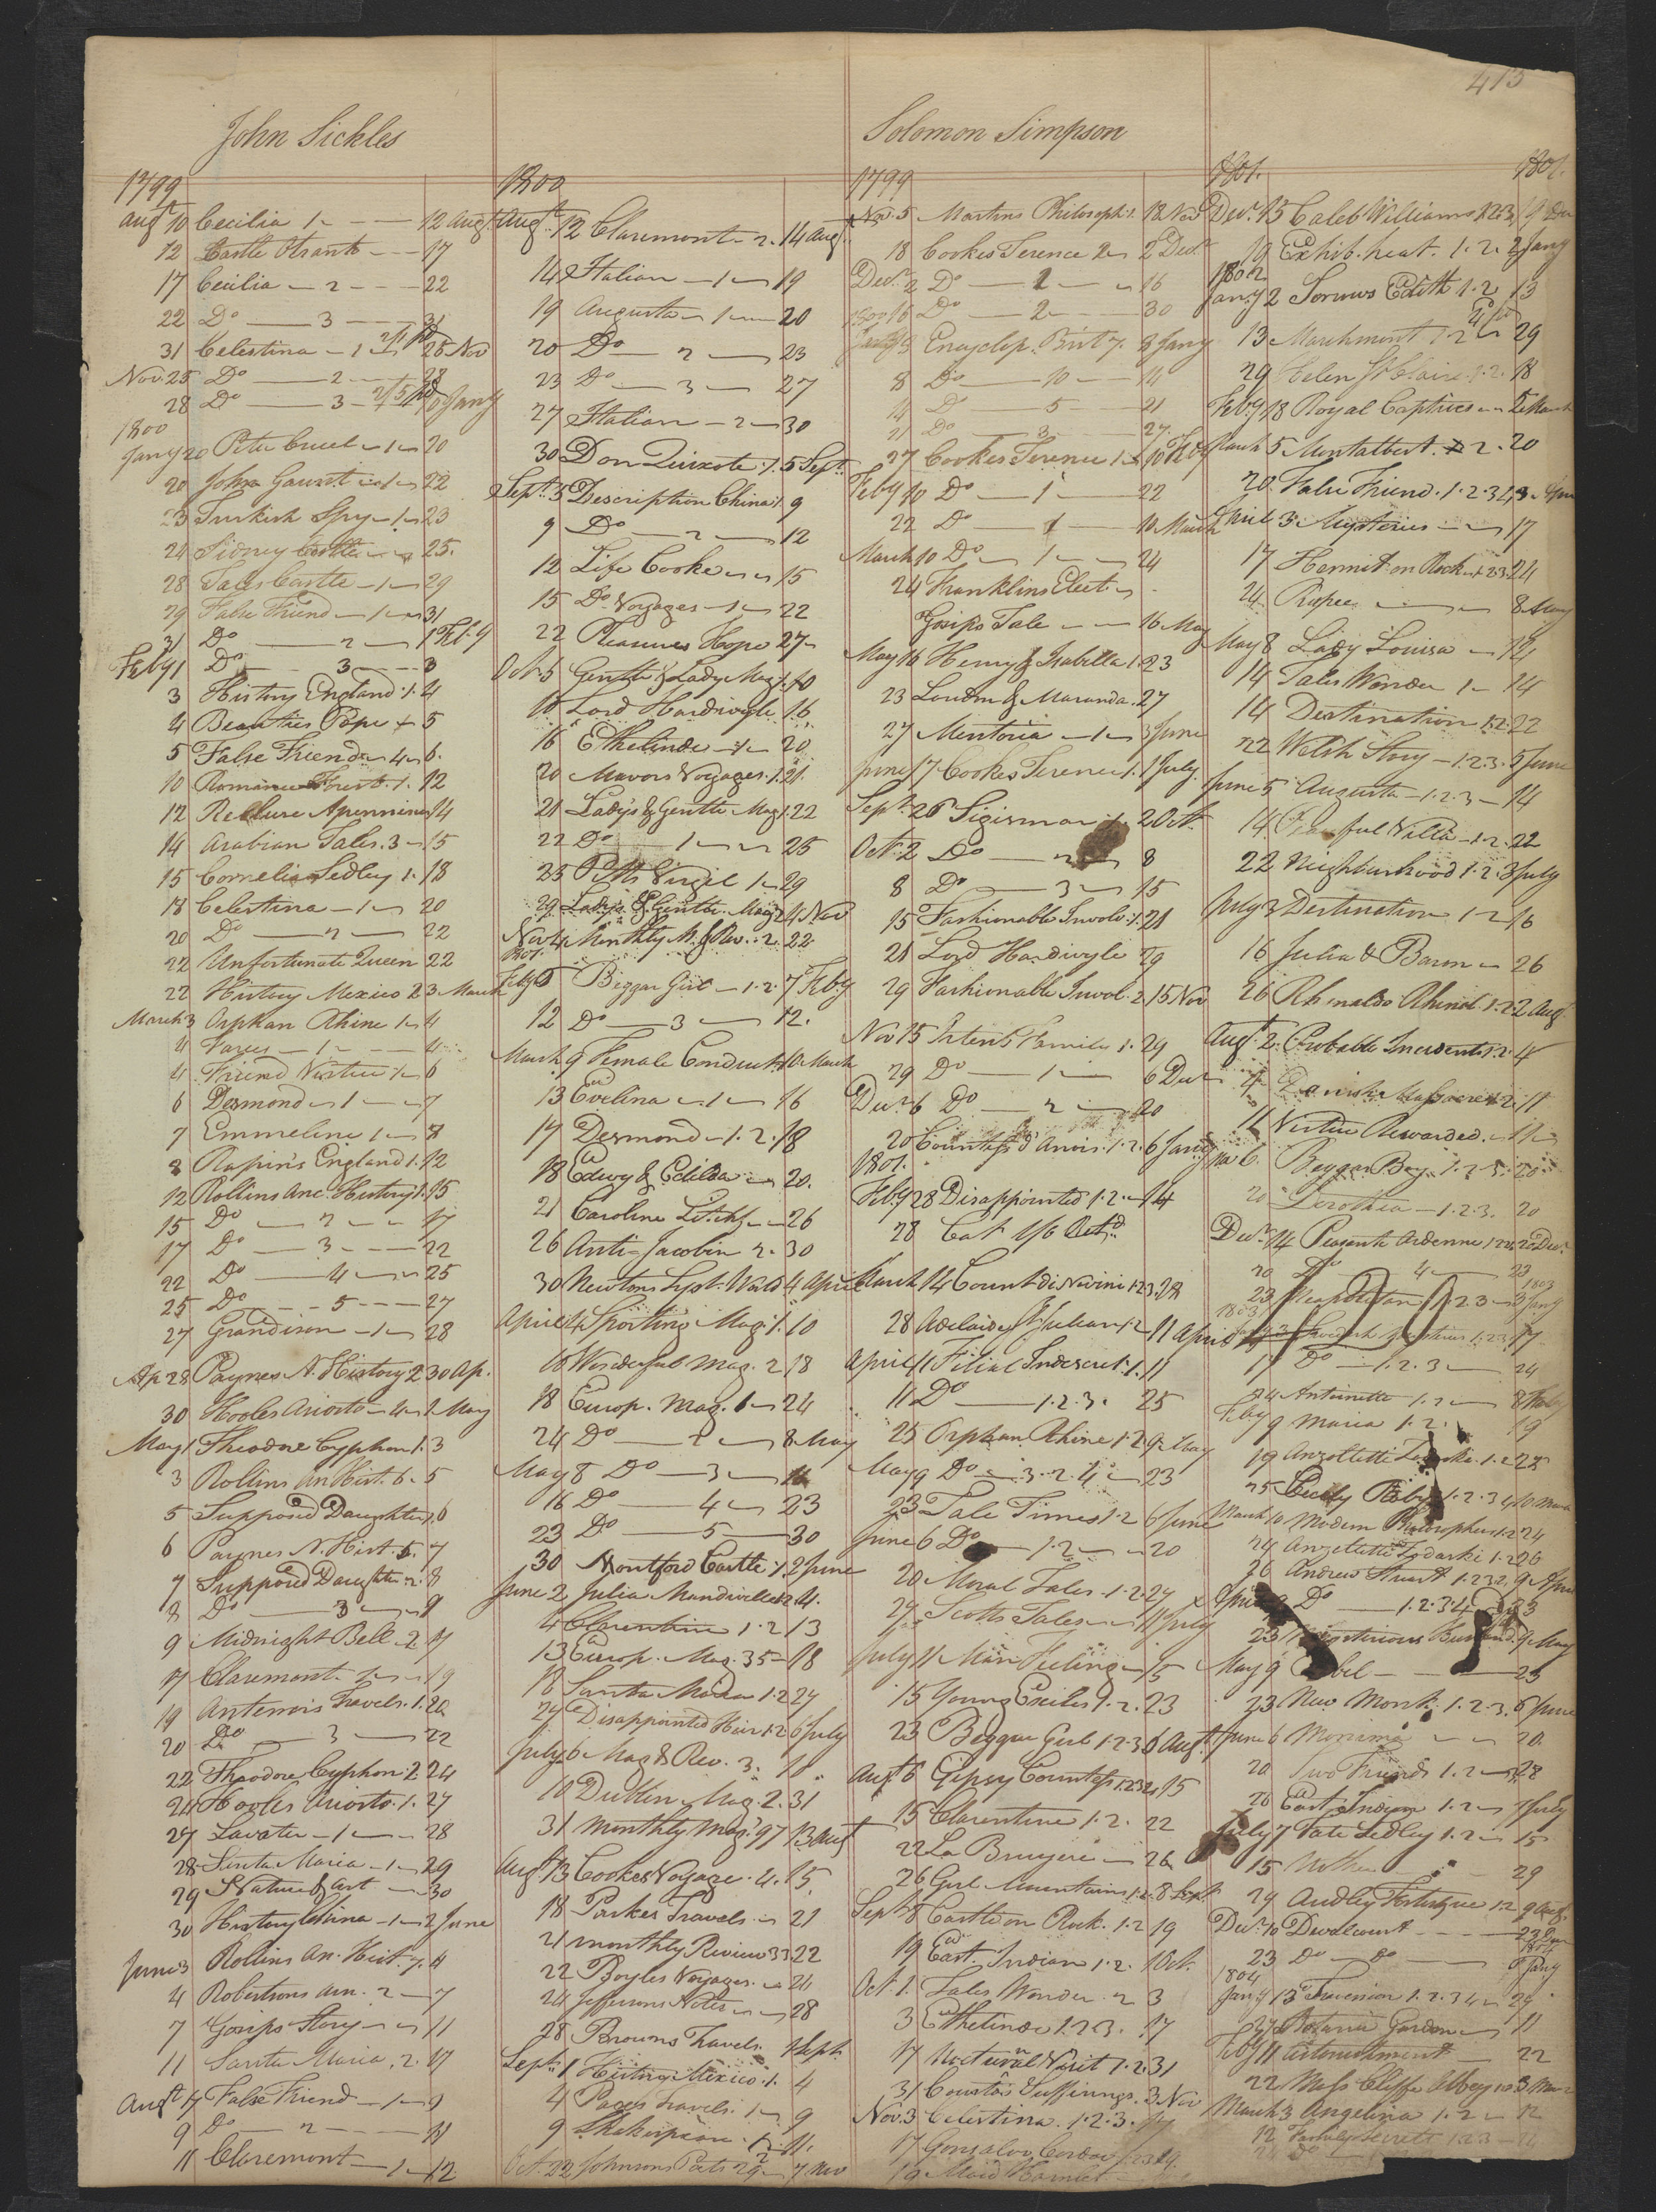 413
John Sickles
1799
Augt 10 Cecilia 1 12 Augt
12 Castle Otranto 17
17 Cecilia 2 22
22 Do 3 31
31 Celestina 1 25 Nov
Nov 25 Do 2 28
28 Do 3 10 Jany
1800
Jany 20 Peter Cruel 1 20
20 John Gaunt 1 22
23 Turkish Spy 1 23
24 Sidney Castle 25.
28 Tales Castle 1 29
29 False Friend 1 31
31 Do 2 1 Feby
Feby 1 Do 3 3
3 History England 1. 4
4 Beauties Pope 5
5 False Friend 4 6.
10 Romance Forest. 1. 12
12 Recluse Apennines 14
14 Arabian Tales. 3 15
15 Cornelia Sedley 1. 18
18 Celestina 1 20
20 Do 2 22
22 Unfortunate Queen 22
22 History Mexico 2 3 March
March 3 Orphan Rhine 1 4
4 Farces 1 4
4 Friend Virtue 1 6
6 Desmond 1 7
7 Emmeline 1 8
8 Rapin's England 1. 12
12 Rollins Anc. History 1. 15
15 Do 2 17
17 Do 3 22
22 Do 4 25
25 Do 5 27
27 Grandison 1 28
Ap 28 Paynes N. History 2 30 Ap.
30 Hooles Ariosto 4 1 May
May 1 Theodore Cyphon 1. 3
3 Rollins An Hist. 6. 5
5 Supposed Daughter 1. 6
6 Paynes N. Hist. 5. 7
7 Supposed Daughter 2. 8
8 Do 3 9
9 Midnight Bell 2 17
17 Claremont 19
19 Antenors Travels. 1. 20
20 Do 3 22
22 Theodore Cyphon 2 24
24 Hooles Ariosto. 1. 27
27 Lavater 1 28
28 Santa Maria 1 29
29 Nature & Art 30
30 History China 1 2 June
June 3 Rollins An. Hist. 7. 4
4 Robertsons Am. 2 7
7 Gosips Story 11
11 Santa Maria. 2. 17
Augt 17 False Friend 1 9
9 Do 2 11
11 Claremont 1 12
1800
Augt 12 Claremont 2. 14 Aug.
14 Italian 1 19
19 Augusta 1 20
20 Do 2 23
23 Do 3 27
27 Italian 2 30
30 Don Quixote. 1. 5 Sept.
Sept. 5 Description China 1. 9
9 Do 2 12
12 Life Cooke 15
15 Do Voyages 1 22
22 Pleasures Hope 27
Oct. 5 Gentle & Lady Mag 1. 10
10 Lord Hardivogle 16
16 Ethelinde 1 20
20 Mavors Voyages. 1. 21.
21 Lady's & Gentle. Mag 1. 22
22 Do 1 25
25 Pitts Virgil 1 29
29 Lady's & Gentle. Mag 2 4 Nov
Nov 4 Monthly M. & Rev. 2. 22
1801.
Feby 5 Beggar Girl 1. 2. 7 Feby
12 Do 3 12.
March 9 Female Conduct 10 March
13 Evelina 1 16
17 Desmond 1. 2. 18
18 Edwy & Edilda 20.
21 Caroline Litchf 26
26 Anti-Jacobin 2. 30
30 Newtons Syst. World 4 April
April 4 Sporting Mag. 1. 10
10 Wonderful Mag. 2 18
18 Europ. Mag. 1 24
24 Do 2 8 May
May 8 Do 3 16
16 Do 4 23
23 Do 5 30
30 Montford Castle 1. 2 June
June 2 Julia Mandiville 1. 2 4.
4 Clarentine 1. 2 13
13 Europ. Mag. 35 18
18 Santa Maria 1. 2 24
24 Disappointed Heir 1. 2 6 July
July 6 Mag & Rev. 3. 10
10 Dublin Mag. 2. 31
31 Monthly Mag. 97 13 Augt
Augt 13 Cookes Voyage. 4. 15
18 Parkes Travels 21
21 Monthly Review 33 22
22 Boyles Voyages 24
24 Jeffersons Notes 28
28 Browns Travels. 1 Sept.
Sept. 1 History Mexico. 1. 4
4 Pages Travels. 1 9
9 Shakespeare. 11.
Oct. 22 Johnsons Poets 29 7 Nov
Solomon Simpson
1799
Nov. 5 Martins Philosoph. 1. 18 Nov
18 Cookes Terence 2 2 Dec.
Decr 2 Do 1 16
16 Do 2 30
1800
Jany 3 Encyclop. Brit 7. 8 Jany
8 Do 10 14
14 Do 5 21
21 Do 3 27.
27 Cookes Terence 1 10 Feby
Feby 10 Do 1 22
22 Do 1 10 March
March 10 Do 1 24
24 Franklins Elect
Gosips Tale 16 May
May 16 Henry & Isabella 1. 23
23 Loudon & Maranda. 27
27 Mentoria 1 3 June
June 17 Cookes Terence 1. 1 July.
Sept. 26 Sigismar 1. 2 Oct.
Oct. 2 Do 2 8
8 Do 3 15
15 Fashionable Involv. 1. 21
21 Lord Hardivogle 29
29 Fashionable Invol. 2 15 Nov
Nov 15 Family 1. 29
29 Do 1 6 Dec
Decr 6 Do 2 20
20 Countess d Anvis. 1. 2. 6 Jany
1801.
Feby 28 Disappointed 1. 2. 14
28 Cat 1/6
March 14 Count di Novini 1. 2. 3. 28
28 Adelaide St Julian 1. 2 11 April
April 11 Filial Indiscret. 1. 11
11 Do 1. 2. 3. 25
25 Orphan Rhine 1. 2. 9 May
May 9 Do 3. 2. 4 23
23 Tale Times 1. 2 6 June
June 6 Do 1. 2 20
20 Moral Tales 1. 2 27
27 Scotts Tales 11 July
July 11 Man Feeling 15
15 Young Exiles 1. 2. 23
23 Beggar Girl 1. 2. 3 6 Augt
Augt 6 Gipsy Countess 1. 2. 3. 4 15
15 Clarentine 1. 2. 22
22 La Bruyere 26
26 Girl Mountains 1. 2. 8 Sept
Sept 8 Castle on Rock. 1. 2 19
19 East. Indian 1. 2. 1 Oct.
Oct. 1. Tales Wonder 2 3
3 Ethelinde 1. 2. 3. 17
17 Nocturnal Visit 1. 2. 31
31 Constas Suffirings. 3 Nov
Nov. 3 Celestina. 1. 2. 3. 17
17 Gonsalvo Cordova 19.
19 Maid Hamlet
1801.
1801.
Decr 15 Caleb Williams 1. 2. 3 19 Dec
19 Exhib. heart. 1. 2. 2 Jany
1802
Jany 2 Sorrows Edith 1. 2 13
13 Marchmont 1. 2 29
29 Helen St Clair. 1. 2. 18
Feby 18 Royal Captives 5 March
March 5 Montalbert. 2. 20
20 False Friend. 1. 2. 3 4 3 Apri
April 3 Mysteries 17
17 Hermit on Rock 1. 2. 3. 24
24 Rupee 8 May
May 8 Lady Louisa 14
14 Tales Wonder 1 14
14 Destination 1. 2. 22
22 Welsh Story 1. 2. 3. 5 June
June 5 Augusta 1. 2. 3 14
14 Villa 1. 2. 22
22 Neighbourhood 1. 2. 3 July
July 3 Destination 1 2 16
16 Julia & Baron 26
26 Rhinaldo Rhinal. 1. 2 2 Aug.
Augt 2. Probable Incidents 1. 2. 4
4 Danish Massacre 1. 2. 11
11 Virtue Rewarded. 11
Beggar Boy. 1. 2 3. 20
20 Dorothea 1. 2. 3. 20
Decr 14 Peasant Ardenne 1. 2. 3. 20 Decr
20 Do 4 23
23 Neapolitan 1. 2. 3 3 Jany
1803
17 Do 1. 2. 3 24
24 Antoinette 1. 2 8 Feby
Feby 9 Maria 1. 2. 19
19 Anzoletta Zadoski. 1. 2 25
25 Cicely Raby 1. 2. 3 4 10 March
March 10 Modern Philosophers 1. 2 24
24 Anzoletta Zadaski 1. 2 26
26 Andrew Stuart 1. 2 3 2. 9 April
April 9 Do 1. 2. 3 4 23
23 Mysterious Husband. 9 May
May 9 23
23 New Monk. 1. 2. 3. 6 June
June 6 20.
20 Two Friends 1. 2 28
28 East Indian 1. 2 7 July
July 7 Fate Sedley 1. 2 15
15 29
29 Audley Fortescue 1. 2 9 Aug.
Decr 10 Devalcourt 23 Dec
1804
23 Do Do 6 Jany
1804
Jany 13 1. 2. 3 4 27
27 Botanic Garden 11
Feby 11 Astonishment 22
22 Moss Cliffe Abbey 1. 2. 3 Mar
March 3 Angelina 1. 2 12
12 Family Secrets 1. 2 3